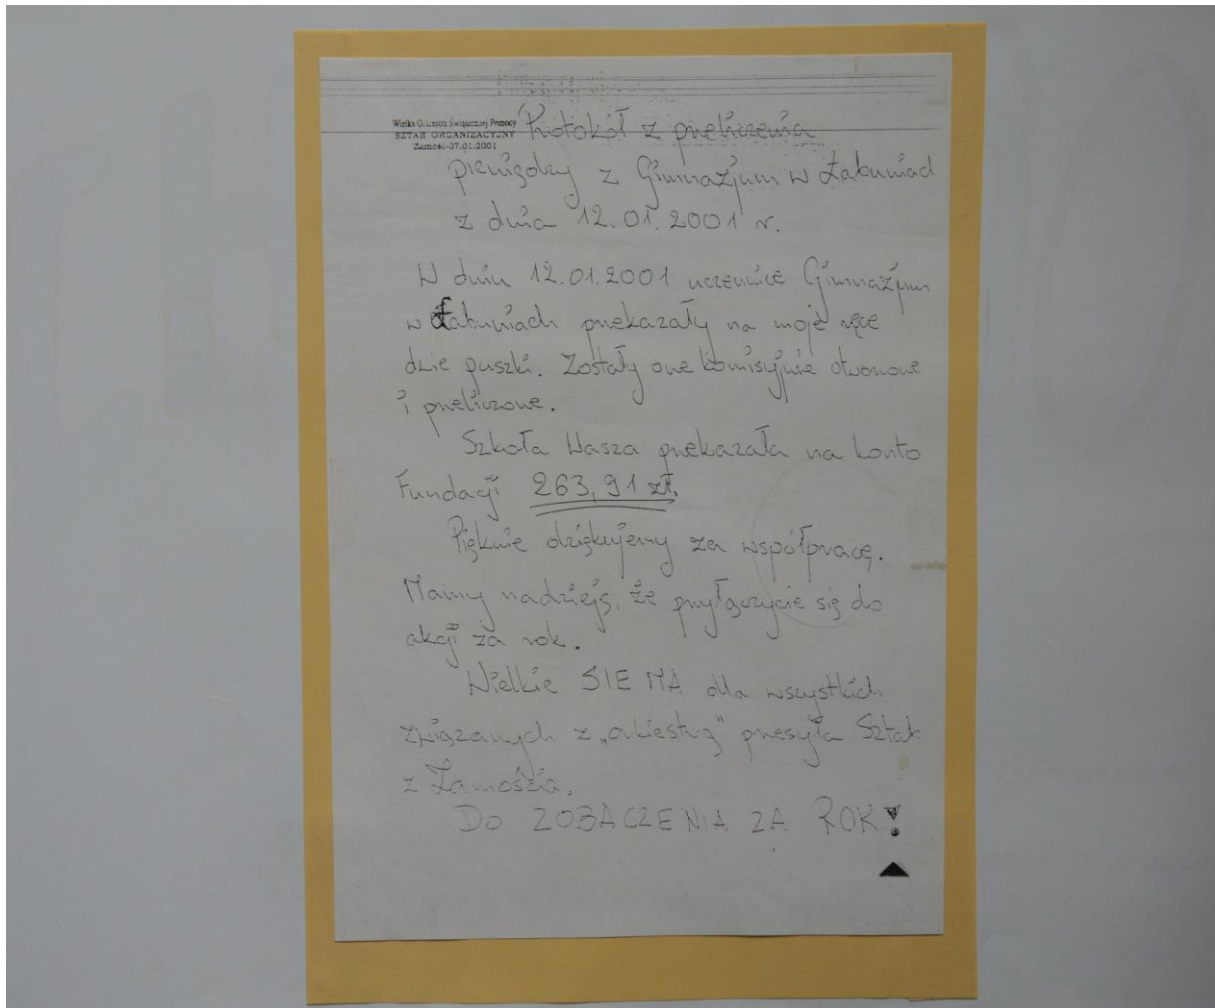 Wielka Orkiestra Świątecznej Pomocy
SZTAB ORGANIZACYJNY
Zamość-07.01.2001
Protokół z przeliczenia
pieniędzy z Gimnazjum w Łabuniach
z dnia 12.01.2001 r.
W dniu 12.01.2001 uczennice Gimnazjum
w Łabuniach przekazały na moje ręce
dzie puszki. Zostały one komisyjnie otworzone
i przeliczone.
Szkoła Wasza przekazała na konto
Fundacji 263,91 zł.
Pięknie dziękujemy za współpracę.
Mamy nadzieję, że przyłączycie się do
akcji za rok.
Wielkie SIE MA dla wszystkich
związanych z „orkiestrą" przesyła Sztab
z Zamościa.
DO ZOBACZENIA ZA ROK!